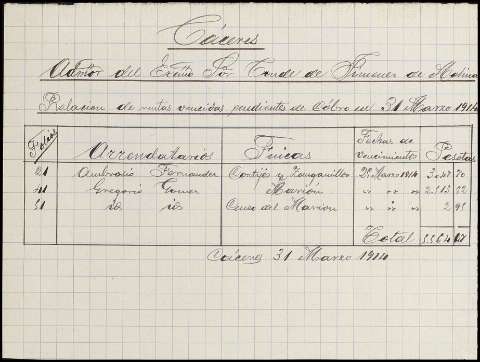 Cáceres
Admor del Excmo Sor Conde de de Molina
Relacion de rentas vencidas pendientes de Cobro en 31 Marzo 1914
Folios Arrendatarios Fincas Fechas de vencimiento Pesetas
21 Ambrosio Fernandez Cortijo y 25 Marzo 1914 70
41 Gregorio Gomez Marión " " " 2.513 22
51 id id Censo del Marion " " " 2 95
Total 5.564 87
Cáceres 31 Marzo 1914